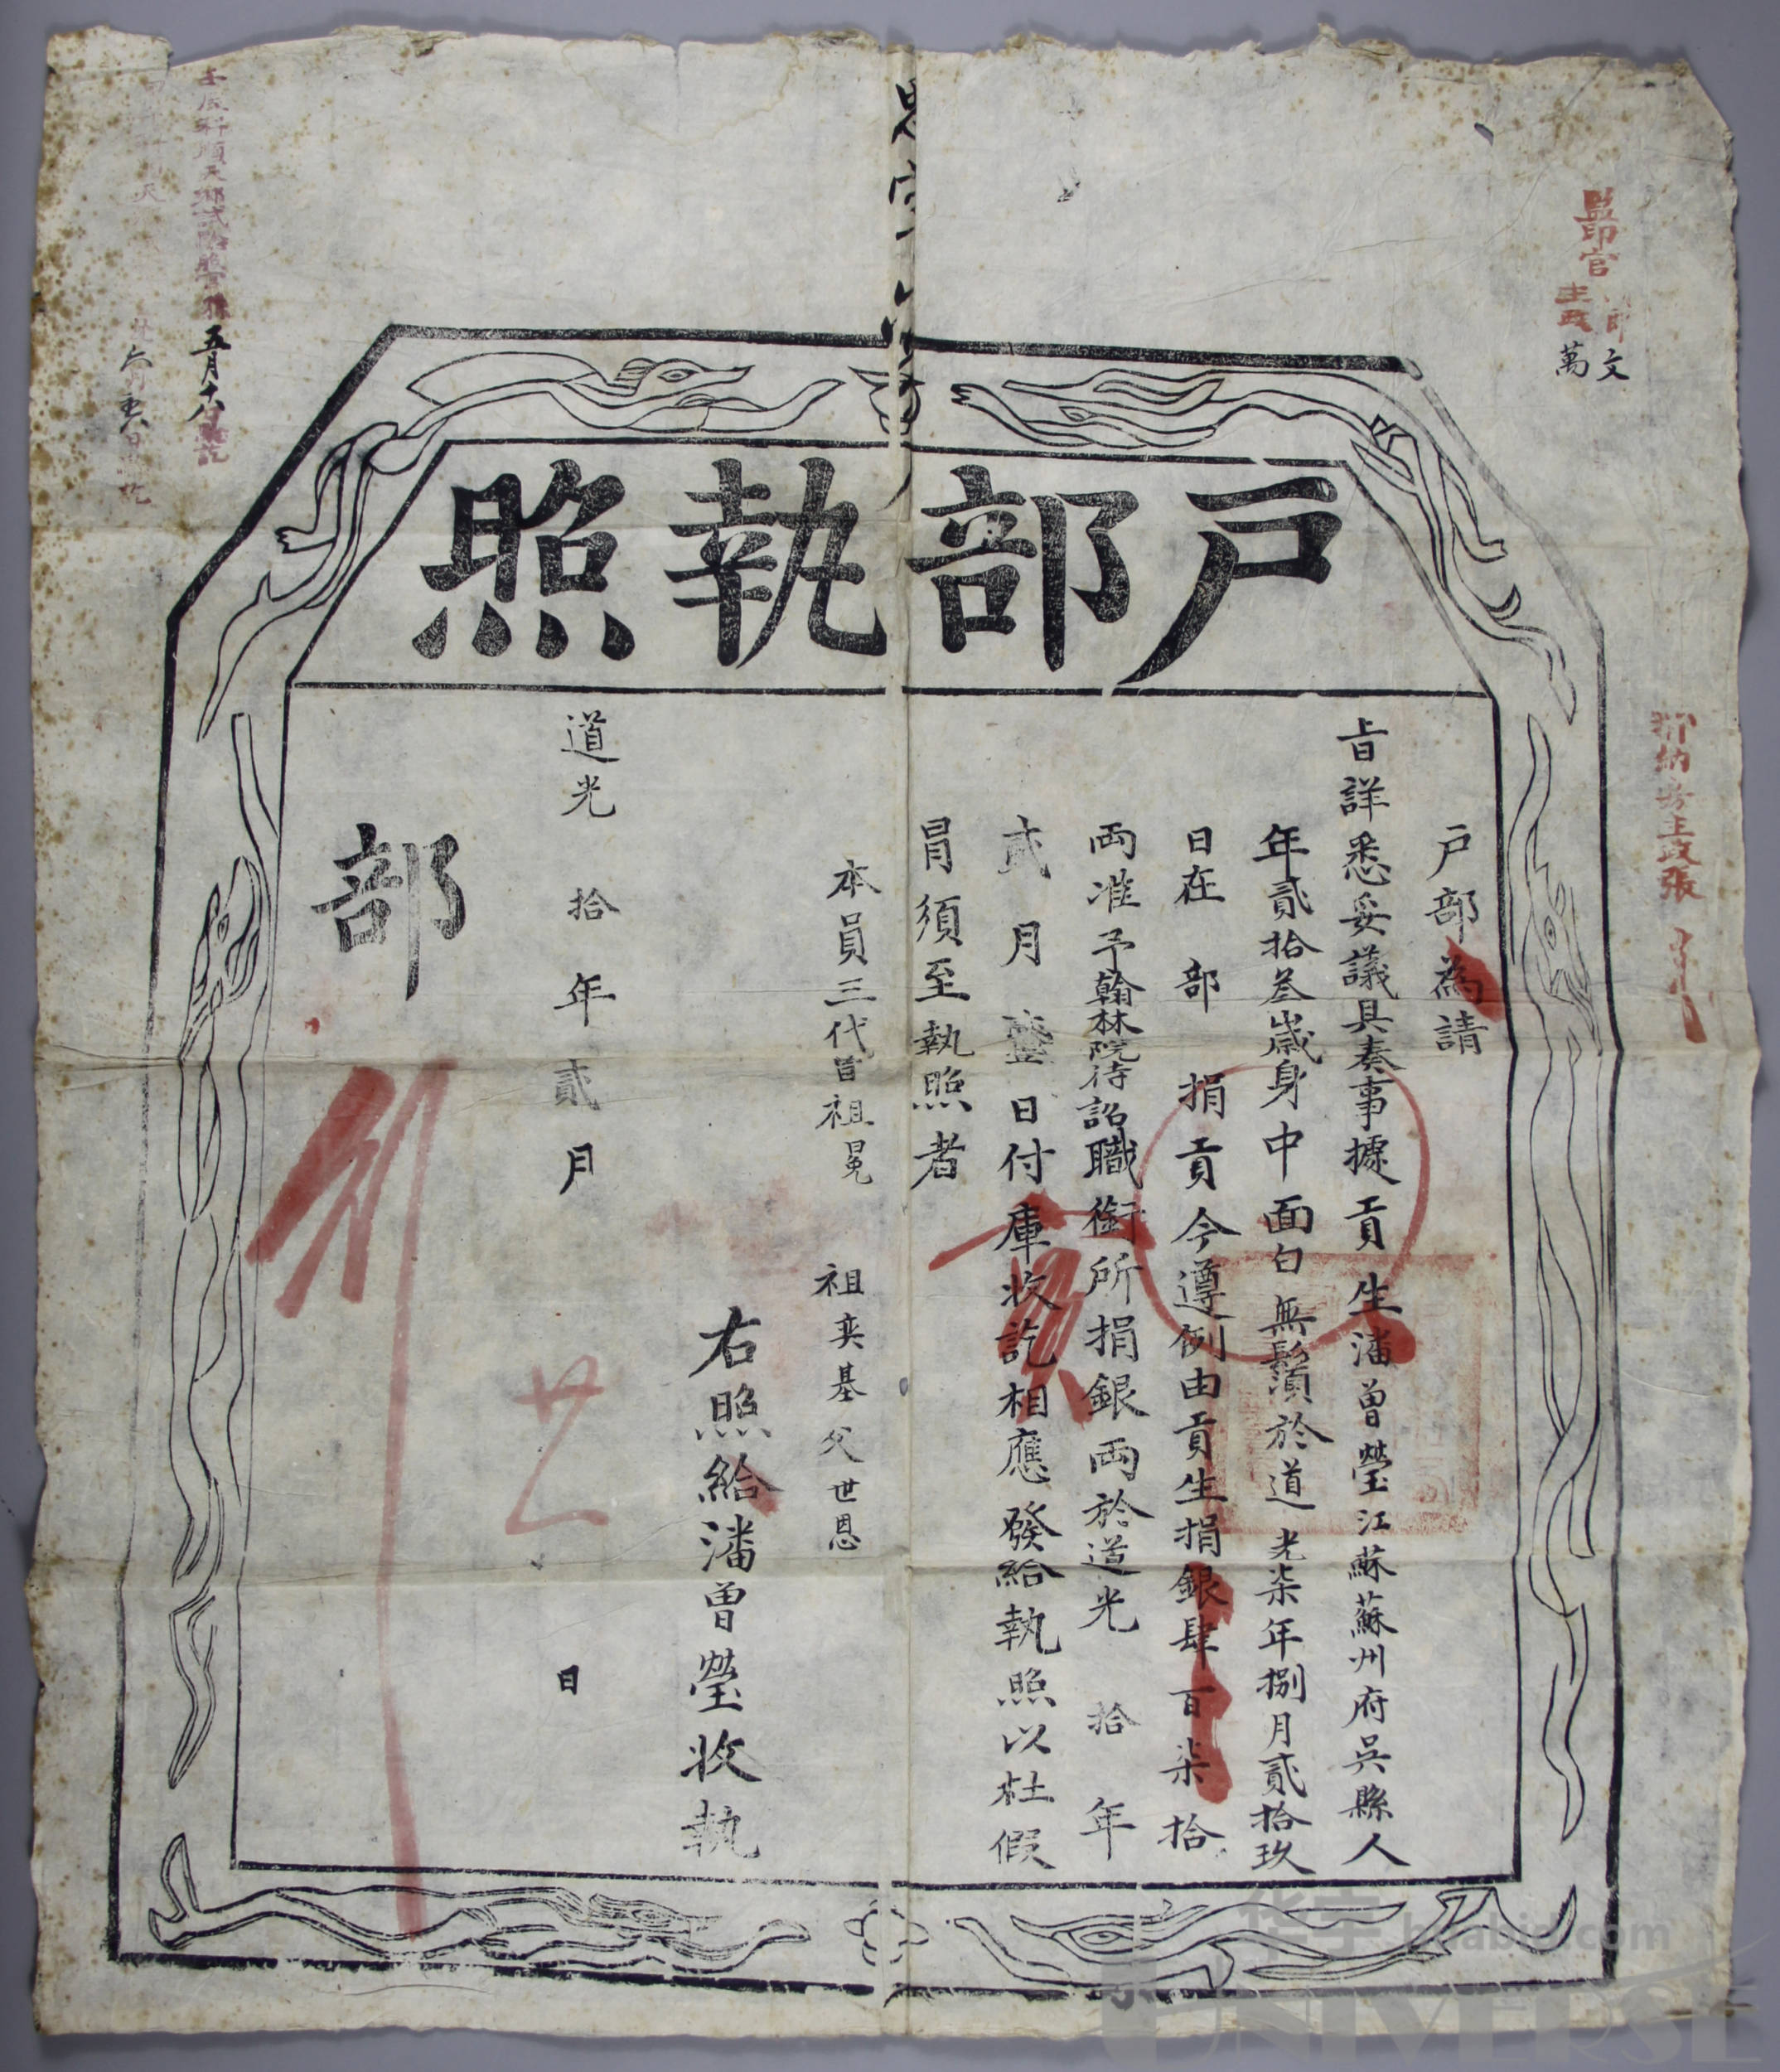 戶部執照
戶部為請
旨詳悉妥議具奏事據貢生潘曾瑩江蘇蘇州府吳縣人
年貳拾叁歲身中面白無鬚於道光柒年捌月貳拾玖
日在部捐貢今遵例由貢生捐銀肆百柒拾
兩准予翰林院待詔職銜所捐銀兩於道光拾年
貳月壹日付庫收訖相應發給執照以杜假
冒須至執照者
本員三代曾祖冕祖奕基父世恩
右照給潘曾瑩收執
道光拾年貳月廿日
部
行
監印官
主政萬
郎文
卯納房主政張
五月十八日驗訖
华宇 huabid.com
UNIVERSE